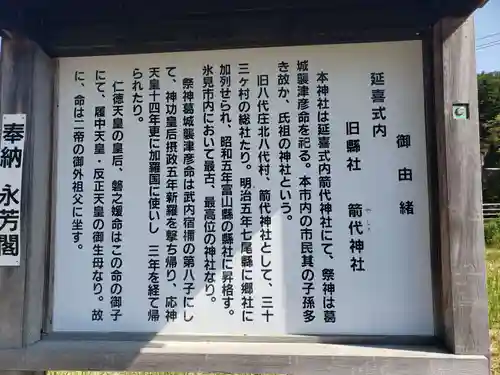 御由緒
延喜式内
旧縣社 箭代神社
やしろ
本神社は延喜式内箭代神社にて、祭神は葛
城襲津彦命を祀る。本市内の市民其の子孫多
き故か、氏祖の神社という。
旧八代庄北八代村、箭代神社として、三十
三ヶ村の総社たり。明治五年七尾縣に郷社に
加列せられ、昭和五年富山縣の縣社に昇格す。
氷見市内において最古、最高位の神社なり。
祭神葛城襲津彦命は武内宿禰の第八子にし
て、神功皇后摂政五年新羅を撃ち帰り、応神
天皇十四年更に加羅国に使いし 三年を経て帰
られたり。
仁徳天皇の皇后、磐之媛命はこの命の御子
にて、履中天皇・反正天皇の御生母なり。故
に、命は二帝の御外祖父に坐す。
奉納 永芳閣